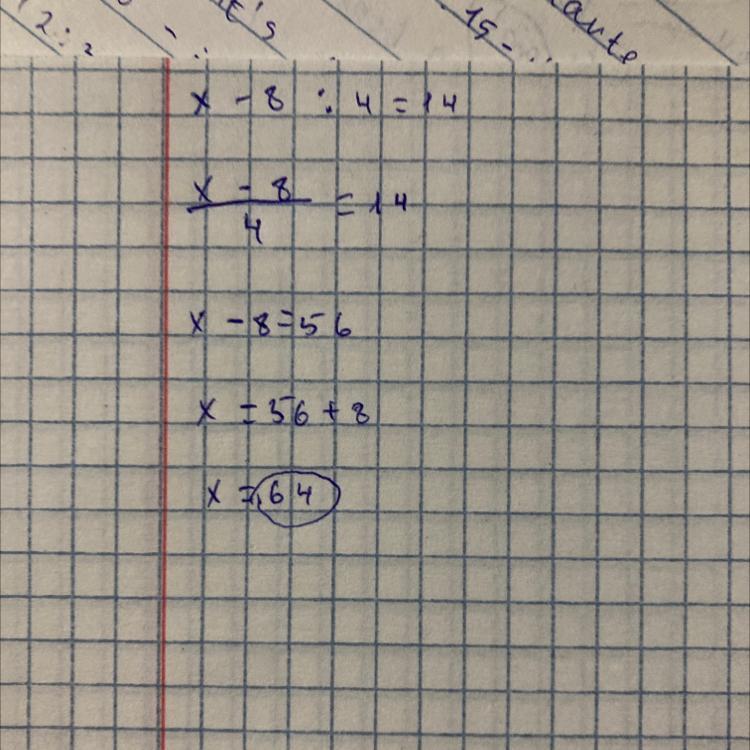 12:2 t's 15- ante
x - 8 : 4 = 14
x - 8 / 4 = 14
x - 8 = 56
x = 56 + 8
x = 64